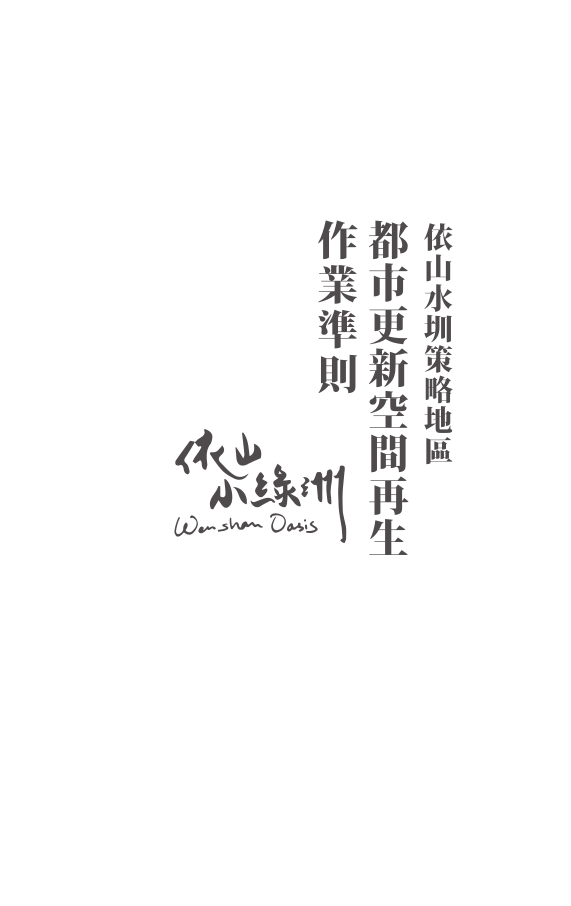 依山水圳策略地區
都市更新空間再生
作業準則
依山
小綠洲
Wenshan Oasis